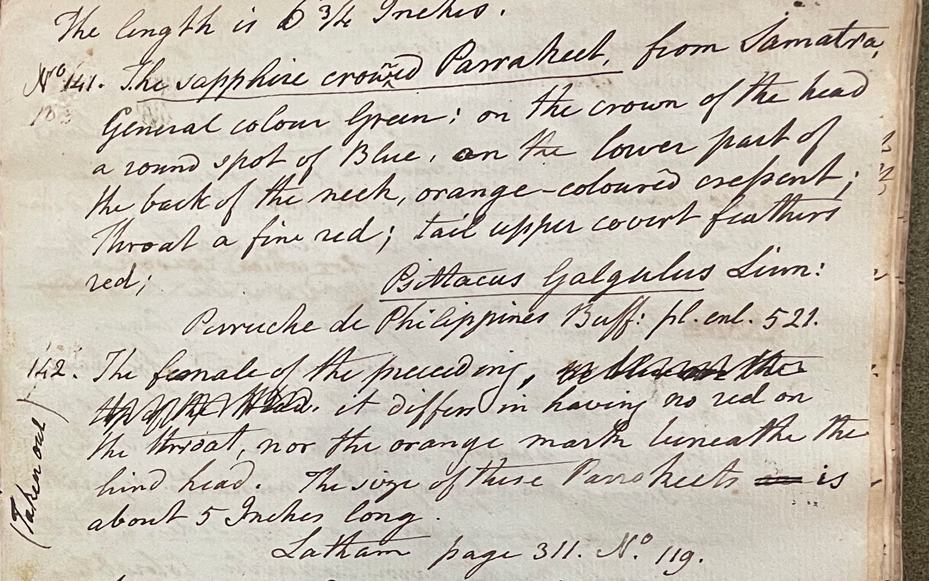 The length is 6 3/4 Inches.
No 141. The sapphire crowned Parrakeet, from Samatra,
General colour Green; on the crown of the head
a round spot of Blue, on the lower part of
the back of the neck, orange-coloured crescent;
Throat a fine red; tail upper covert feathers
red; Psittacus Galgulus Linn:
Perruche de Philippines Buff: pl. enl. 521.
142. The female of the preceding,
it differs in having no red on
the throat, nor the orange mark beneathe the
hind head. The size of these Parrakeets is
about 5 Inches long.
Latham page 311. No 119.
(Taken out)